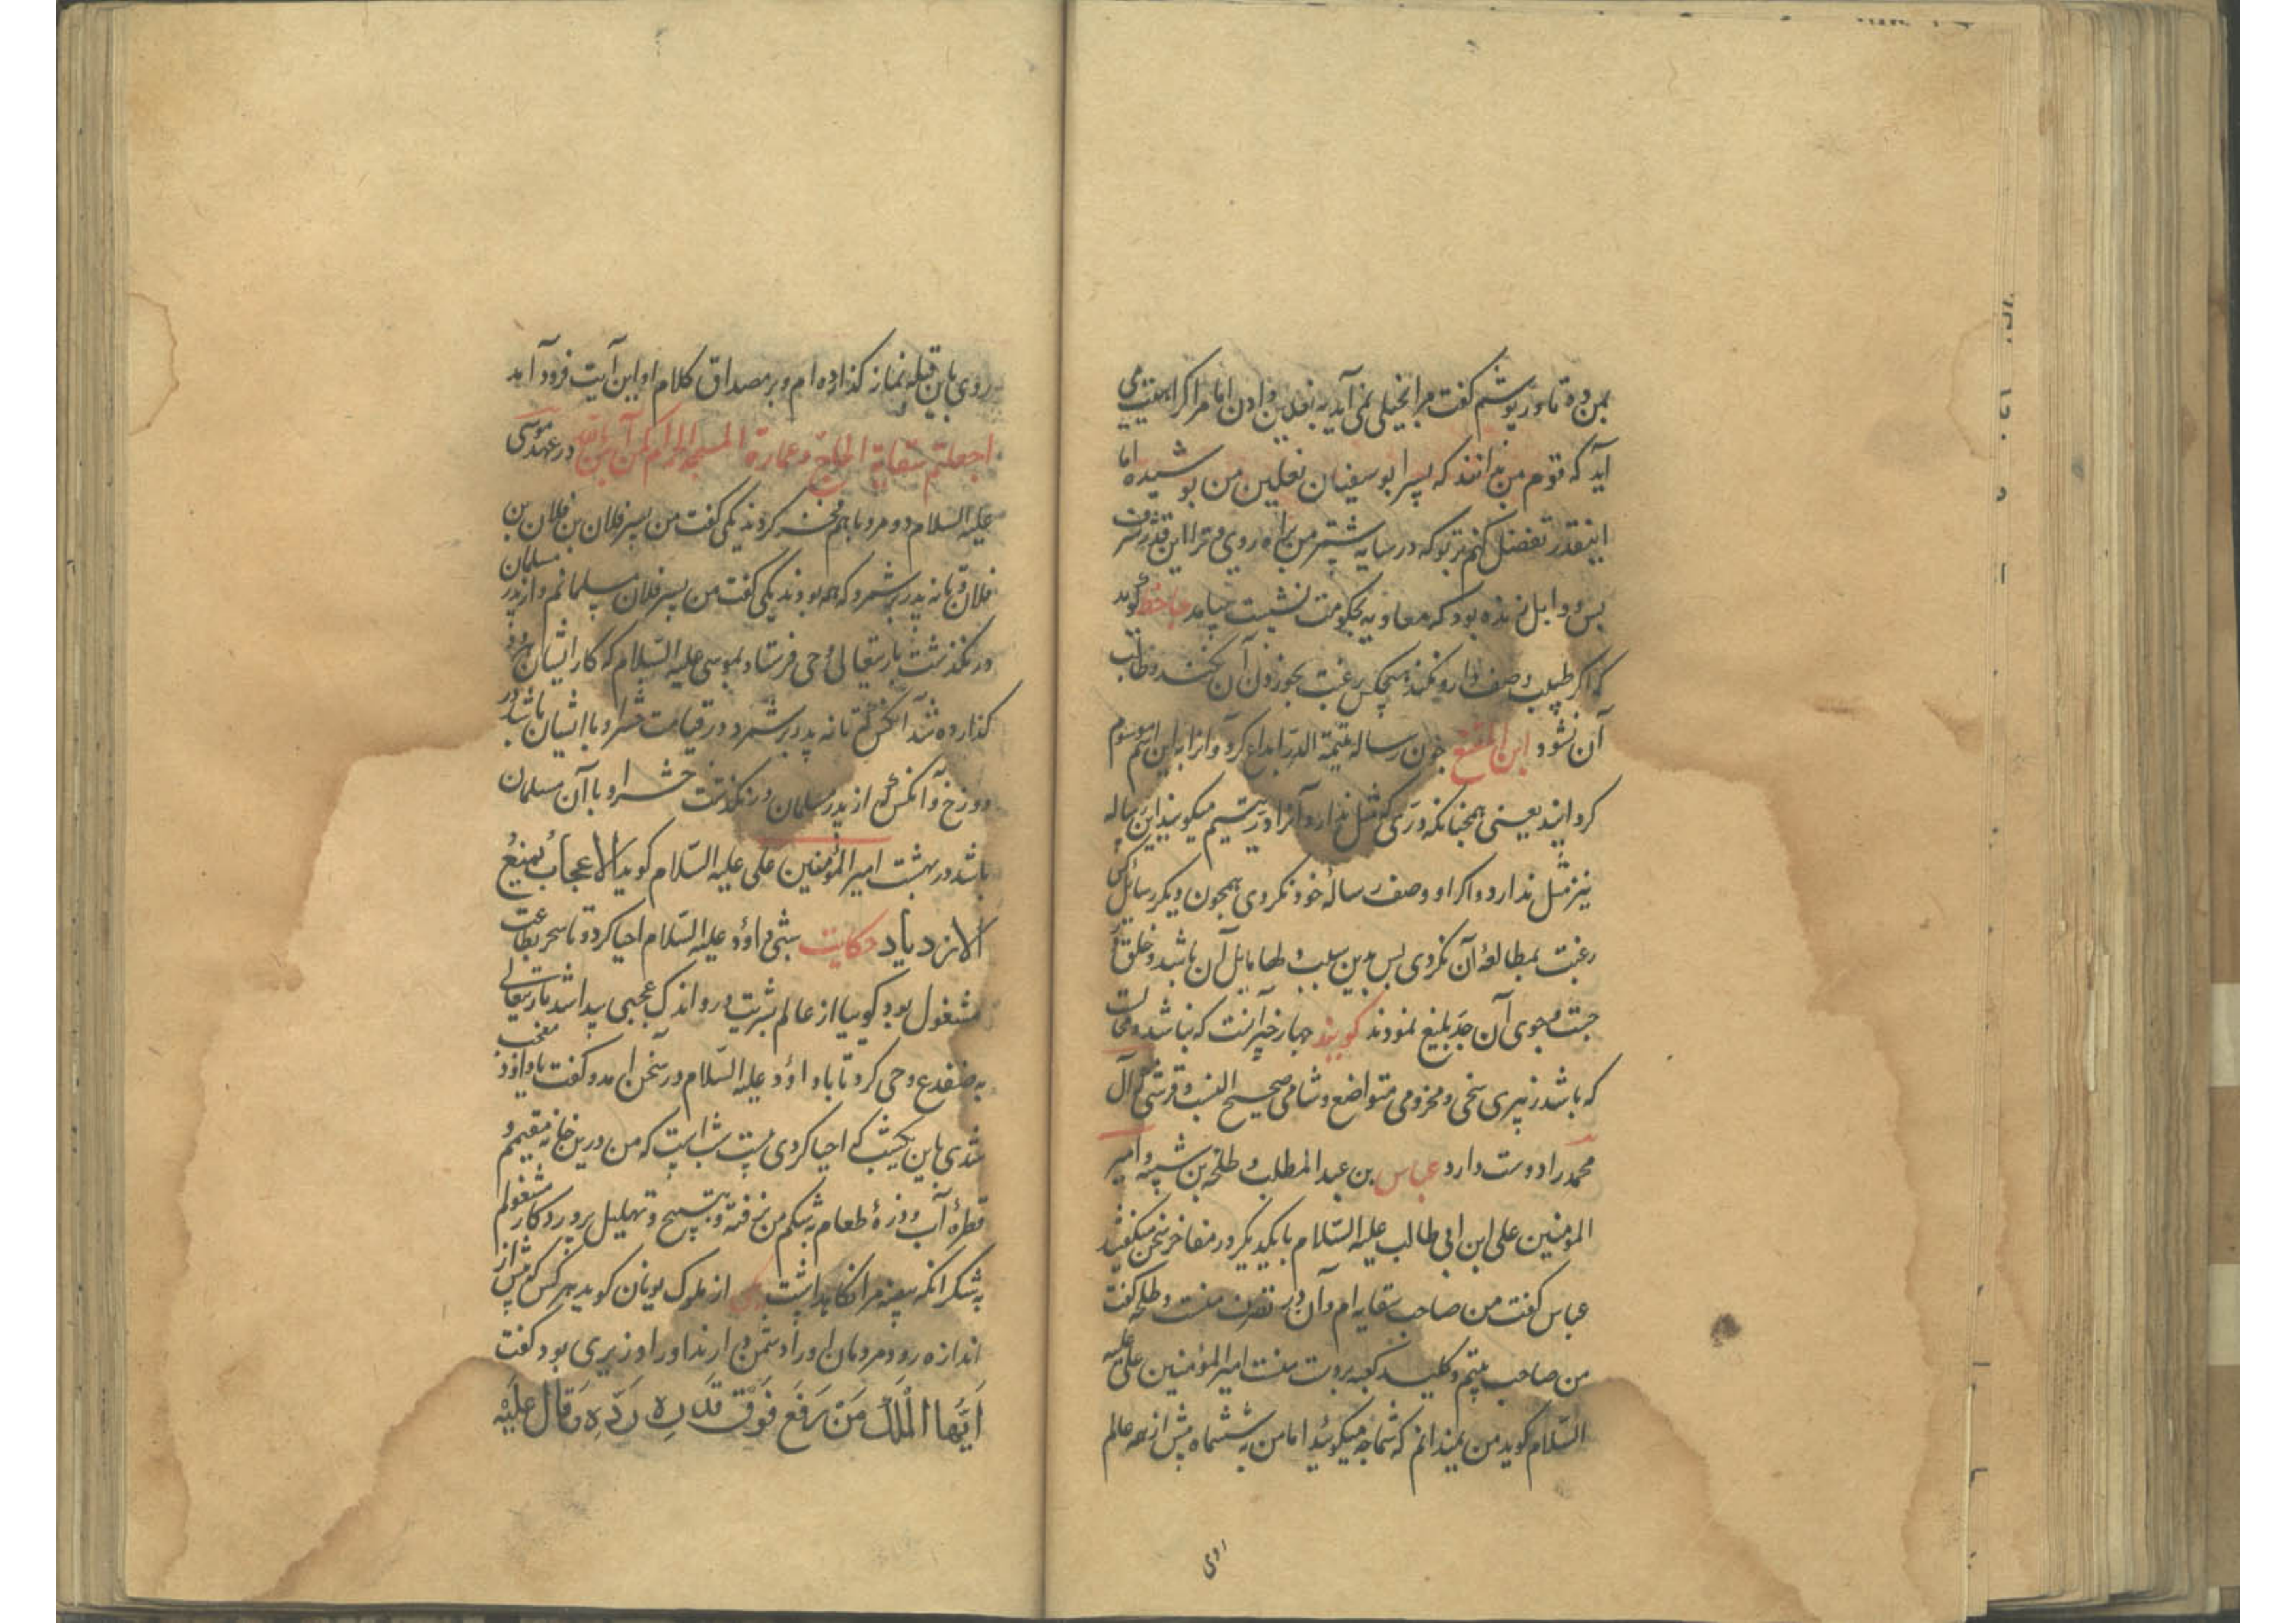 بمن ده تا در پوشم گفت مرا بخیلی نمی آید به نعلین دادن اما مرا کراهیت می
آید که قوم من بدانند که پسر ابو سفیان نعلین من پوشیده اما
اینقدر تفضل کنم بر تو که در سایه شتر من براه روی و ترا این قدر شرف
بس و وابل زنده بود که معاویه بحکومت نشست بیامد جاحظ گوید
که اگر طبیب وصف دارو نکند هیچکس رغبت بخوردن آن نکند و طالب
آن نشود ابن المقنع چون رساله یتیمة الدر ابداع کرد و آنرا باین اسم موسوم
گردانید یعنی همچنانکه درّی که مثل ندارد و آنرا درّ یتیم میگویند این رساله
نیز مثل ندارد و اگر او وصف رسالهٔ خود نکردی همچون دیگر رسائل کس
رغبت بمطالعهٔ آن نکردی پس بدین سبب دلها مایل آن باشد و خلق
جست و جوی آن جدّ بلیغ نمودند گویند چهار چیز آنست که نباشد و محالست
که باشد زبیری سخی و مخزومی متواضع و شامی صحیح النسب و قرشی که آل
محمد را دوست دارد عباس بن عبد المطلب و طلحه بن شیبه و امیر
المؤمنین علی ابن ابی طالب علیه السّلام با یکدیگر در مفاخر سخن میگفتند
عباس گفت من صاحب سقایه ام و آن در تصرف منست و طلحه گفت
من صاحب بیتم و کلید کعبه بدست منست امیر المؤمنین علی علیه
السّلام گوید من نمیدانم که شما چه میگوئید اما من به ششماه پیش از همه عالم
روی
روی باین قبله نماز گذارده ام و بر مصداق کلام او این آیت فرود آمد
اجعلتم سقایة الحاج و عمارة المسجد الحرام کمن آمن بالله در عهد موسی
علیه السلام دو مرد با هم فخر کردند یکی گفت من پسر فلان بن فلان بن
فلان و تا نه پدر بر شمرد که همه بودند یکی گفت من پسر فلان مسلمانم و از پدر مسلمان
در نگذشت باریتعالی وحی فرستاد بموسی علیه السّلام که کار ایشان
گذارده شد آنکس که تا نه پدر بر شمرد در قیامت حشر او با ایشان باشد در
دوزخ و آنکس که از پدر مسلمان در نگذشت حشر او با آن مسلمان
باشد در بهشت امیر المؤمنین علی علیه السّلام گوید الاعجاب یمنع
الازدیاد حکایت شبی داؤد علیه السّلام احیا کرد و تا سحر بطاعت
مشغول بود گوییا از عالم بشریت درو اندک عجبی پیدا شد باریتعالی
به ضفدع وحی کرد تا با داؤد علیه السّلام در سخن آمد و گفت یا داؤد معجب
شدی باین یکشب که احیا کردی بیست شب است که من درین خانه مقیمم و
قطرهٔ آب و ذرهٔ طعام بشکم من نرفته و بتسبیح و تهلیل پروردگار مشغولم
به شکر آنکه بیضه مرا نگاه داشت یکی از ملوک یونان گوید هر کس که پیش از
اندازه رود مردمان او را دشمن دارند او را وزیری بود گفت
اَیُّهَا الْمَلِکُ مَنْ رَفَعَ فَوْقَ قَدْرِهِ رَدِّهِ وَقَالَ عَلَیْهِ